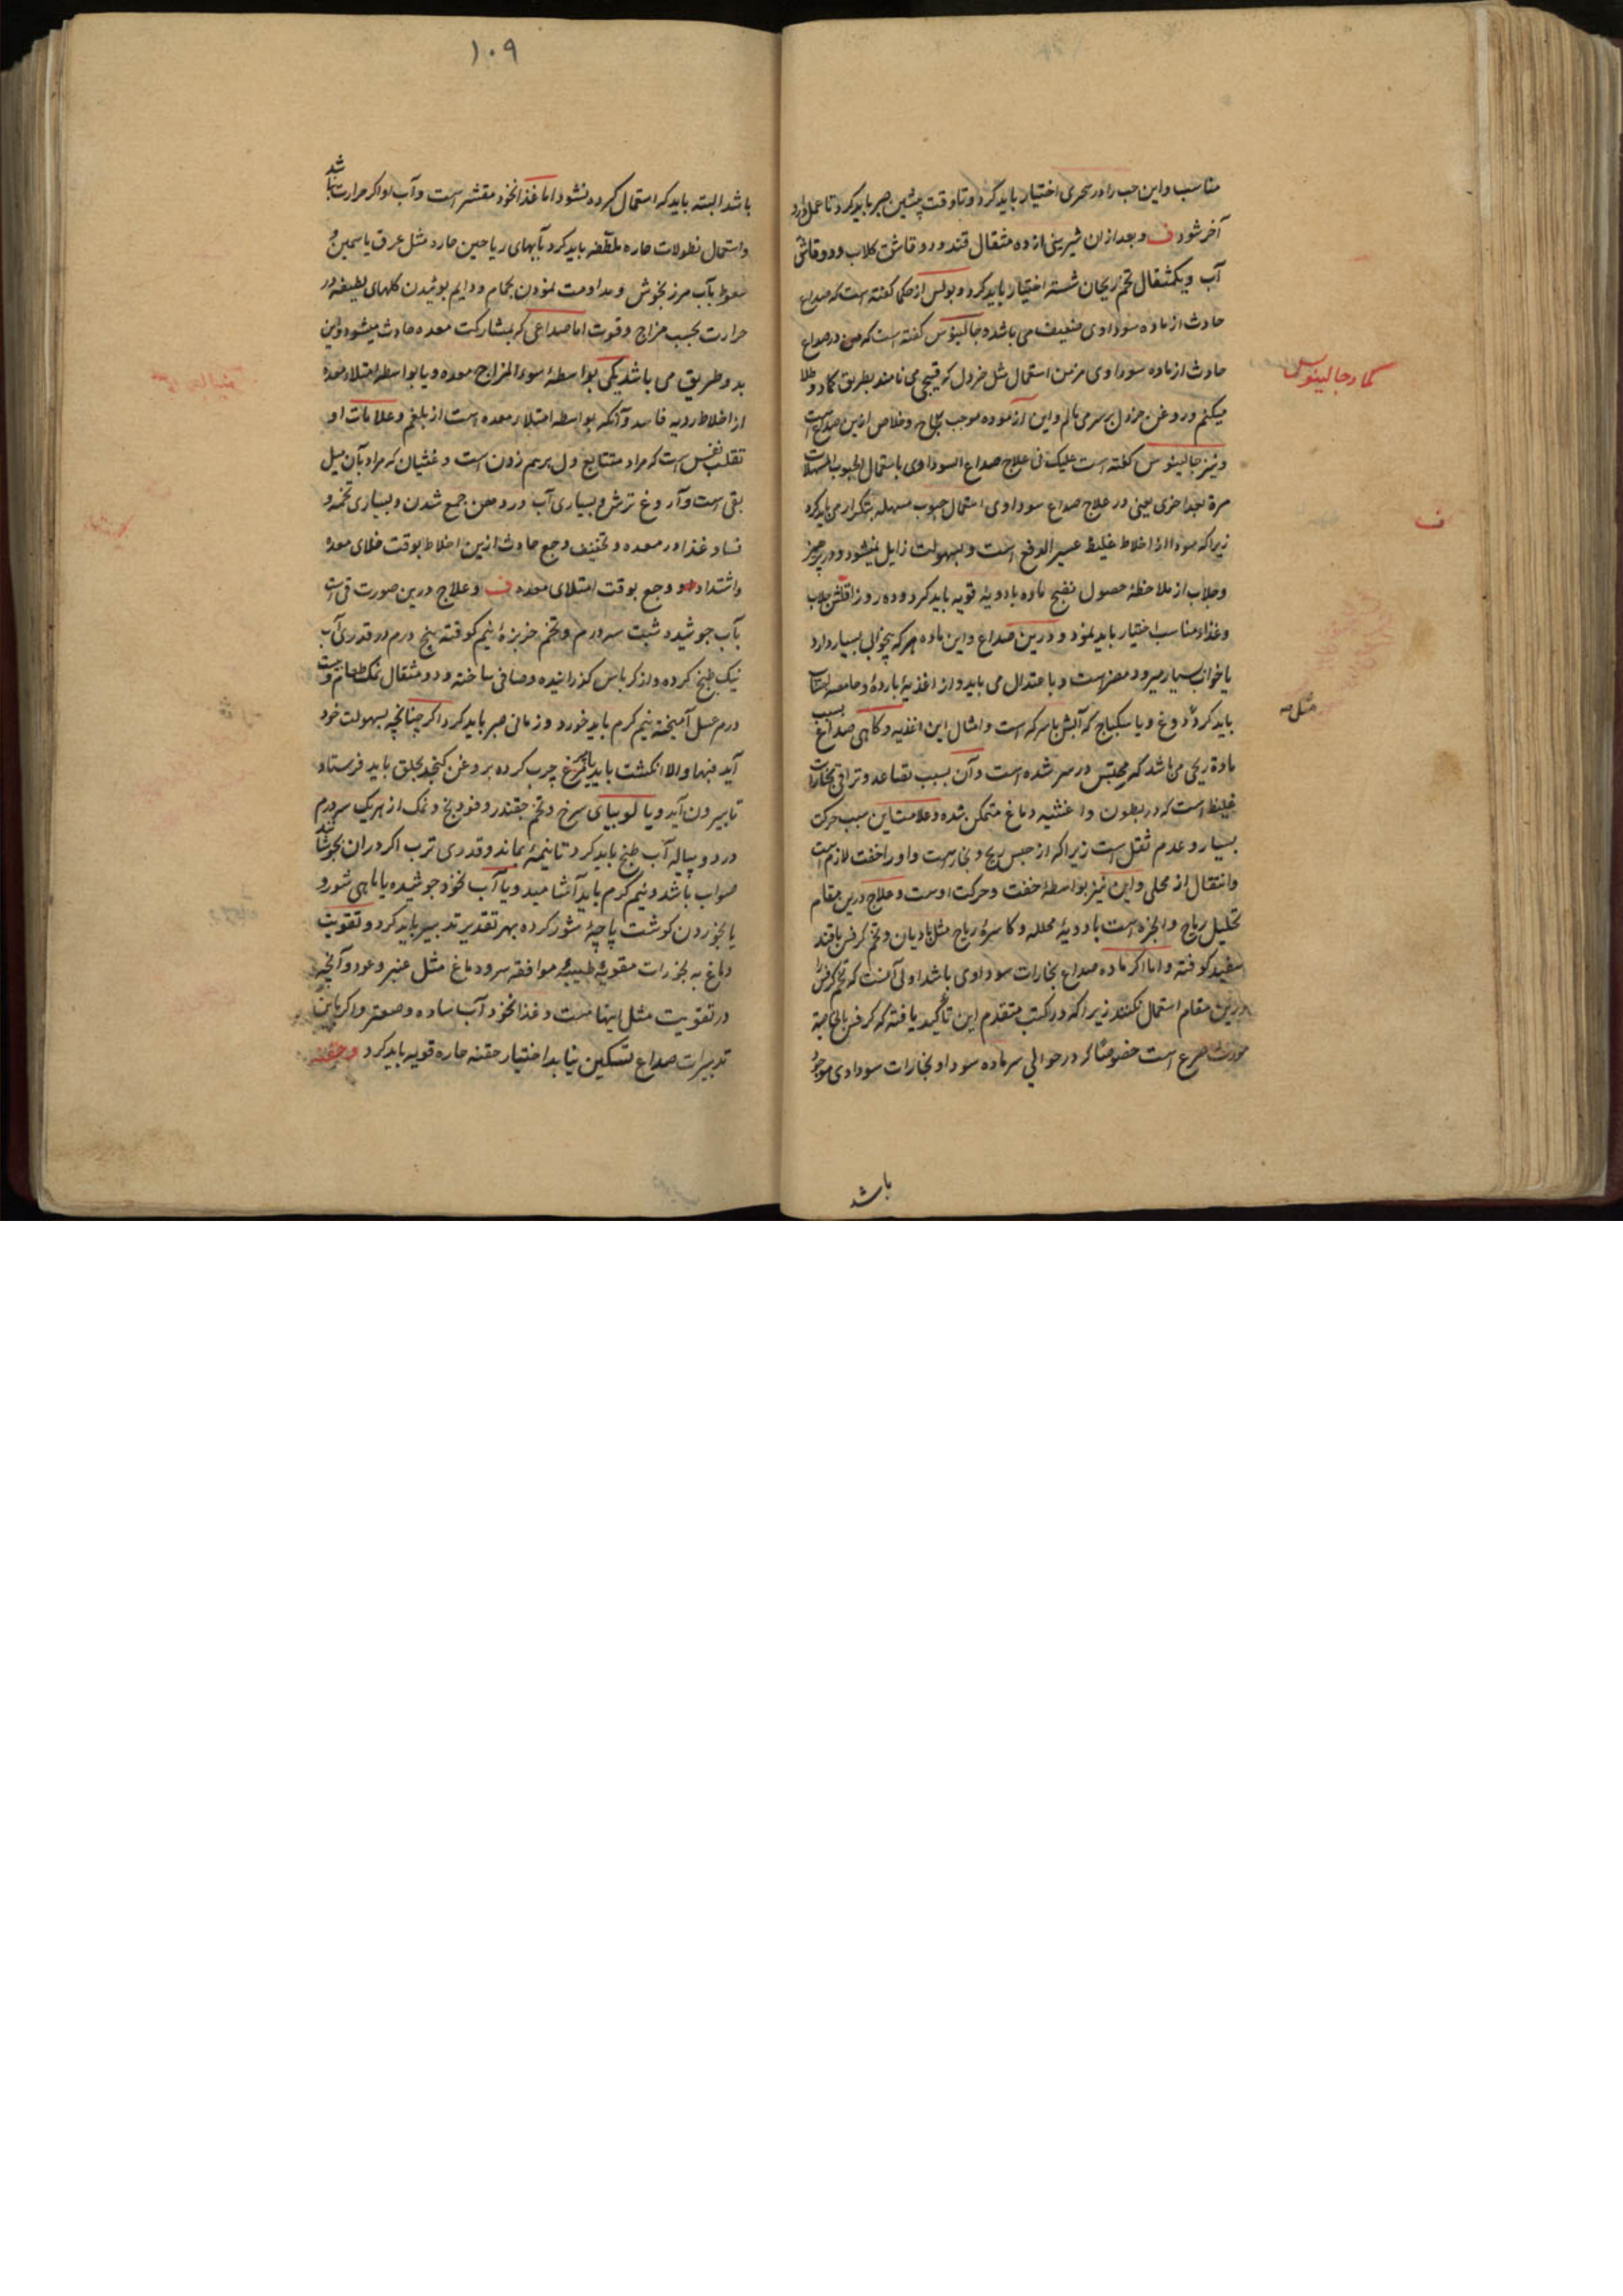 مناسب و این حب را در سحری اختیار باید کرد و تا وقت پیشین صبر باید کرد تا عمل دارو
آخر شود ف و بعد از ان شیرینی از ده مثقال قند و دو قاشق کلاب و دو قاشق
آب و یکمثقال تخم ریحان شسته اختیار باید کرد و بولس از حکما کفته است که صداع
حادث از ماده سوداوی ضعیف می باشد و جالینوس کفته است که من در صداع
حادث از ماده سوداوی مزمن استعمال مثل خردل که قیبجی می نامند بطریق کماد و طلا
میکنم و روغن خردل بر سر می مالم و این آزموده موجب و خلاص ازین صداع است
و نیز جالینوس کفته است علیک فی علاج صداع السوداوی باستعمال الحبوب المسهلات
مرة بعد اخری یعنی در علاج صداع سوداوی استعمال حبوب مسهله بتکرار می باید کرد
زیرا که سودا از اخلاط غلیظ عسیر الدفع است و بسهولت زایل نمیشود و در پرهیز
و جلاب از ملاحظهٔ حصول نضج ماده بادویهٔ قویه باید کرد و ده روز اقلش جلاب
و غذاء مناسب اختیار باید نمود و درین صداع و این ماده هر که بیخوابی بسیار دارد
یا خواب بسیار میرود مضر است و باعتدال می باید و از اغذیهٔ بارده و حامضه اجتناب
باید کرد دوغ و یا سکباج که آتش با سرکه است و امثال این اغذیه و کاهی صداع بسبب
مادهٔ ریحی می باشد که محتبس در سر شده است و آن بسبب تصاعد و تراقی بخارات
غلیظ است که در بطون و اغشیه دماغ متمکن شده و علامت این سبب حرکت
بسیار و عدم ثقل است زیرا که از حبس ریح و بخار است و او را خفت لازم است
و انتقال از محلی و این نیز بواسطهٔ خفت و حرکت اوست و علاج درین مقام
تحلیل ریاح و ابخره است بادویهٔ محلله و کاسرهٔ ریاح مثل بادیان و تخم کرفس با قند
سفید کوفته و اما اکر ماده صداع بخارات سوداوی باشد اولی آنست که تخم کرفس را
درین مقام استعمال نکنند زیرا که در کتب متقدم این تأکید یافته که کرفس بالخاصیة
مورث صرع است خصوصًا که در حوالی سر ماده سودا و بخارات سوداوی موجود
باشد
کماد جالینوس
ف
مثل
١٠٩
باشد البته باید که استعمال کرده نشود اما غذا نخود مقشر است و آب او اکر حرارت نباشد
و استعمال نطولات حاره ملطفه باید کرد بآبهای ریاحین حاره مثل عرق یاسمین و
سعوط بآب مرزنجوش و مداومت نمودن بحمام و دایم بوئیدن کلهای لطیفه در
حرارت بحسب مزاج و قوت اما صداعی که بمشارکت معده حادث میشود و این
بدو طریق می باشد یکی بواسطهٔ سوء المزاج معده و یا بواسطه امتلاء معده
از اخلاط ردیه فاسد و آنکه بواسطه امتلاء معده است از بلغم و علامات او
تقلب نفس است که مراد متتابع دل برهم زدن است و غشیان که مراد بآن میل
بقی است و آروغ ترش و بسیاری آب در دهن جمع شدن و بسیاری تخمه و
فساد غذا در معده و تخفیف وجع حادث ازین اخلاط بوقت خلای معده
و اشتداد وجع بوقت امتلای معده ف و علاج درین صورت قی است
بآب جوشیده شبت سه درم و تخم خربزهٔ نیم کوفته پنج درم در قدری آب
نیک طبخ کرده و از کرباس کذرانیده و صافی ساخته و دو مثقال نمک طعام و بیست
درم عسل آمیخته نیم کرم باید خورد و زمانی صبر باید کرد اکر چنانچه بسهولت خود
آید فبها و الا انکشت باید یا پر مرغ چرب کرده بروغن کنجد بحلق باید فرستاد
تا بیرون آید و یا لوبیای سرخ و تخم چقندر و فودنج و نمک از هر یک سه درم
در دو پیاله آب طبخ باید کرد تا نیمه بماند و قدری ترب اکر در ان بجوشانند
صواب باشد و نیم کرم باید آشامید و یا آب نخود جوشیده یا ماهی شور و
یا بخوردن کوشت پاچهٔ شور کرده بهر تقدیر تدبیر باید کرد و تقویت
دماغ به بخورات مقویهٔ طیبهٔ موافقه سر و دماغ مثل عنبر و عود و آنچه
در تقویت مثل اینهاست و غذا نخود آب ساده و صعتر و اکر باین
تدبیرات صداع تسکین نیابد اختیار حقنه حاره قویه باید کرد و حقنه